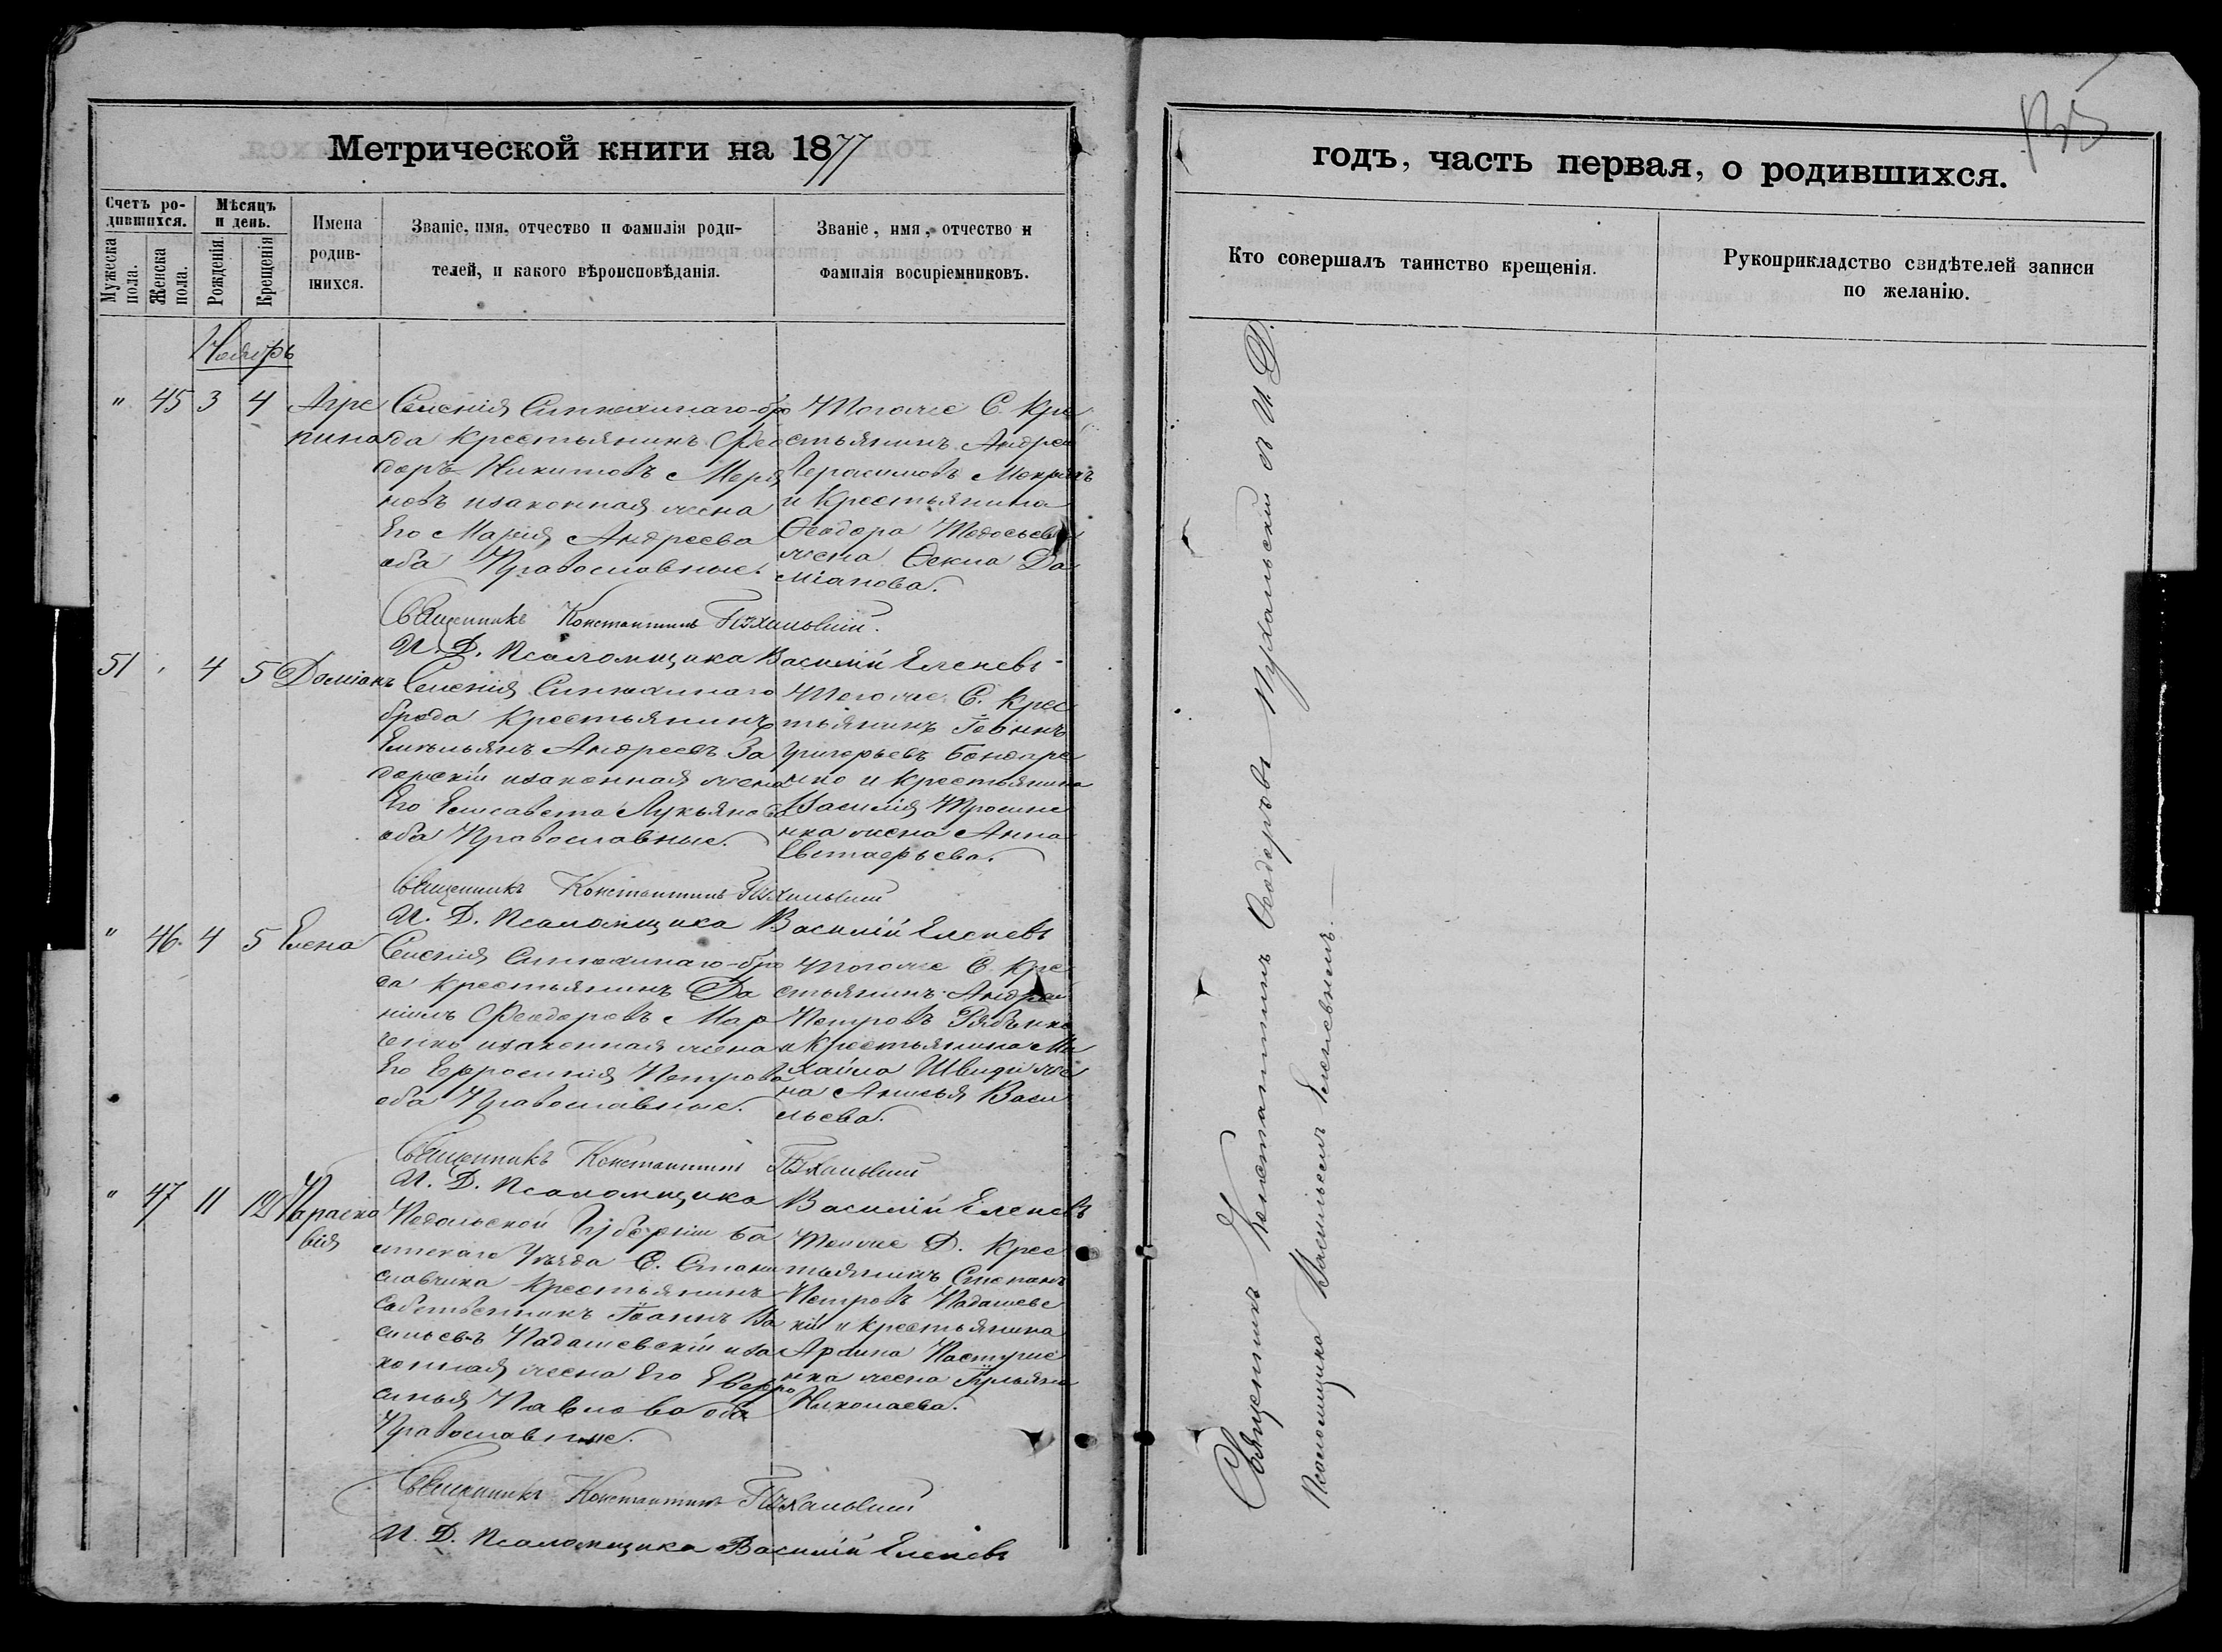 Метрической книги на 1877
годъ, часть первая, о родившихся.
Счетъ ро-
дившихся.
Мужеска
пола.
Женска
пола.
Мѣсяцъ
и день.
Рожденія.
Крещенія
Имена
родив-
шихся.
Званіе, имя, отчество и фамилія роди-
телей, и какого вѣроисповѣданія.
Званіе, имя, отчество и
фамилія воспріемниковъ.
Кто совершалъ таинство крещенія.
Рукоприкладство свидѣтелей записи
по желанію.
Ноябрь
" 45 3 4 Агре
пина
Селенія Синюхинаго-бро
да Крестьянинъ Фео
доръ Никитовъ
новъ изаконная жена
Его Марія Андреева
оба Православные.
Тогоже С. Кре
стьянинъ Андрей
Герасимовъ
и Крестьянина
Ѳеодора
жена Ѳекла Да
міанова.
Священникъ Константинъ
И. Д. Псаломщика Василій Еленевъ
51 " 4 5 Доміанъ
Селенія Синюхинаго
брода Крестьянинъ
Емельянъ Андреевъ За
дорскій изаконная жена
Его Елисавета Лукьянова
оба Православные.
Тогоже С. Крес
тьянинъ Іоаннъ
Григорьевъ Бондаре
нко и Крестьянина
Василія
нка жена Анна
Евстафьева.
Священникъ Константинъ
И. Д. Псаломщика Василій Еленевъ
" 46. 4 5 Елена
Селенія Синюхинаго-бро
да Крестьянинъ Да
ніилъ Феодоровъ Мар
ченко изаконная жена
Его Ефросинія Петрова
оба Православные.
Тогоже С. Кре
стьянинъ Андрей
Петровъ Рябѣнко
и Крестьянина Ми
хаила Швидя же
на Анисья Васи
льева.
Священникъ Константинъ
И. Д. Псаломщика Василій Еленевъ
" 47 11 12 Параске
вія
Подольской Губерніи Ба
лтскаго Уѣзда С. Стани
славчика Крестьянинъ
Собственникъ Іоаннъ Ва
сильевъ Подашевскій иза
конная жена Его Евфро
синья Павлова оба
Православные.
Тойже Д. Крес
тьянинъ Степанъ
Петровъ Подашевс
кій и Крестьянина
нка жена Іульяна
Николаева.
Священникъ Константинъ
И. Д. Псаломщика Василій Еленевъ
Священникъ Константинъ Ѳеодоровъ и И. Д.
Псаломщика Василій